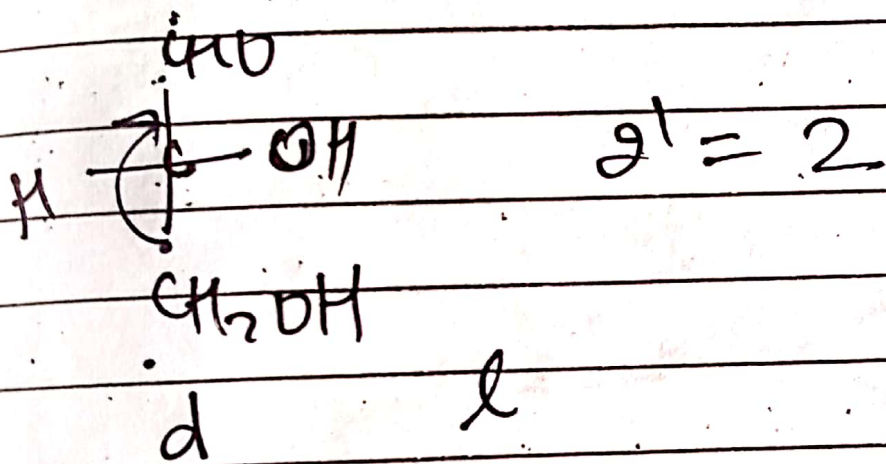 CHO
H C OH 2¹ = 2
CH₂OH
d l